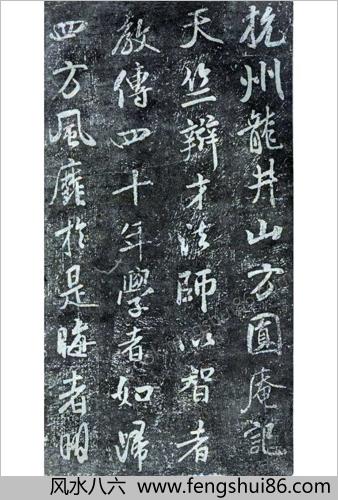 杭州龍井山方圓庵記
天竺辯才法師以智者
教傳四十年學者如歸
四方風靡於是晦者明
风水八六 www.fengshui86.com